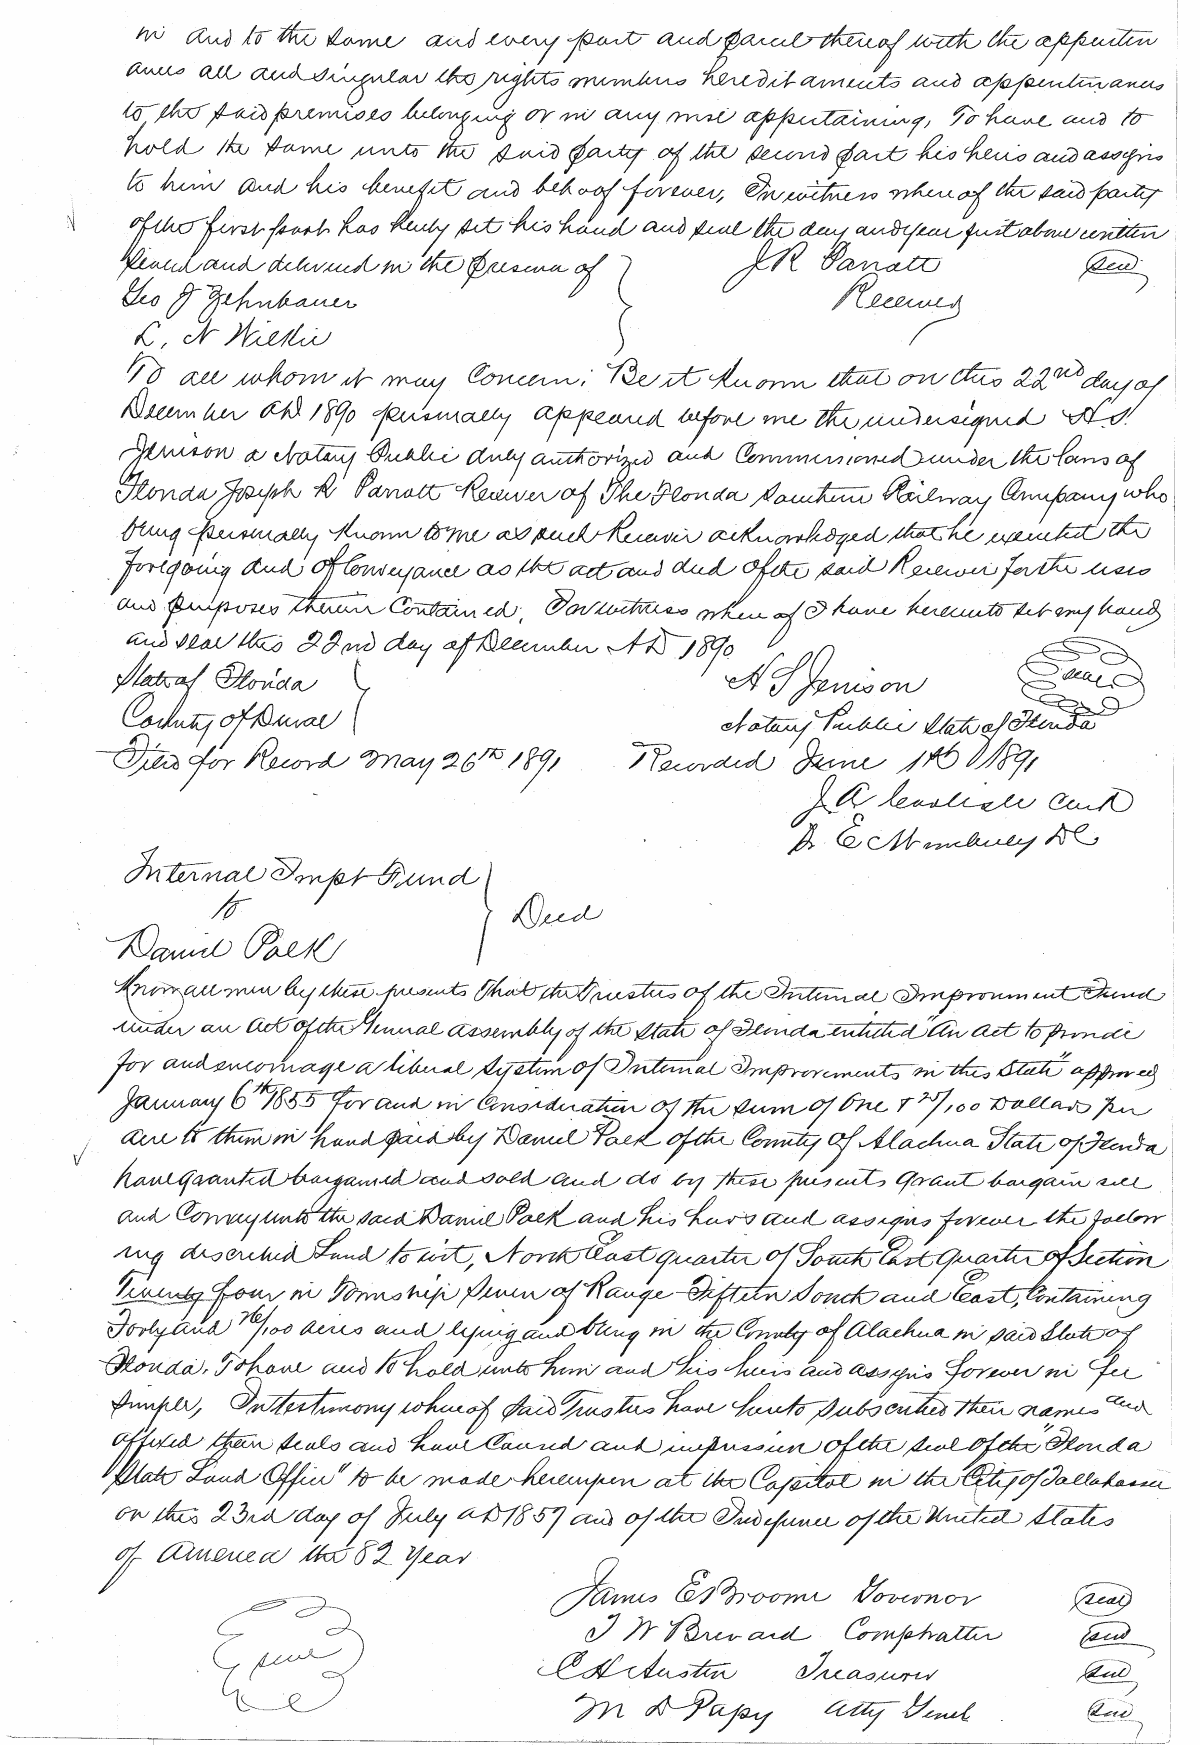 in and to the same and every part and parcel thereof with the appurtin
ances all and singular the rights members hereditaments and appurtinances
to the said premises belonging or in any wise appurtaining, To have and to
hold the same unto the said party of the second part his heirs and assigns
to him and his benefit and behoof forever, In witness where of the said party
of the first part has hereby set his hand and seal the day and year just above written
Signed and delivered in the presence of J R Parrott seal
Geo J Zehnbauer Receiver
L, N Wilkie
To all whom it may Concern; Be it Known that on this 22nd day of
December AD 1890 personally appeared before me the undersigned A S.
Jenison a Notary Public duly authorized and Commissioned under the laws of
Florida Joseph R Parrott Receiver of The Florida Southern Railway Company who
being personally Known to me as such Receiver acknowledged that he executed the
foregoing deed of Conveyance as the act and deed of the said Receiver for the uses
and purposes therein Contained, In witness where of I have hereunto set my hand
and seal this 22nd day of December AD 1890
State of Florida A S Jenison Seal
County of Duval Notary Public State of Florida
Filed for Record May 26th 1891 Recorded June 1st 1891
J A Carlisle Clerk
E DC
Internal Impt Fund
to Deed
Daniel Polk
Know all men by these presents That the Trustees of the Internal Improvement Fund
under an Act of the General Assembly of the State of Florida entitled "An Act to provide
for and encourage a liberal System of Internal Improvements in this State" approved
January 6th 1855 for and in Consideration of the sum of One & 25/100 Dollars per
acre to them in hand paid by Daniel Polk of the County of Alachua State of Florida
have granted bargained and sold and do by these presents grant bargain sell
and Convey unto the said Daniel Polk and his heirs and assigns forever the follow
ing described Land to wit, North East quarter of South East Quarter of Section
Twenty four in Township Seven of Range Fifteen South and East, Containing
Forty and 76/100 acres and lying and being in the County of Alachua in said State of
Florida, To have and to hold unto him and his heirs and assigns forever in fee
simple, In testimony whereof said Trustees have hereto subscribed their names and
affixed their seals and have Caused and impression of the seal of the "Florida
State Land Office" to be made hereupon at the Capitol in the City of Tallahassee
on this 23rd day of July AD 1857 and of the Indepence of the United States
of America the 82 Year
James E Broome Governor seal
T W Brevard Comptroller seal
seal C H Austin Treasurer seal
M D Papy Atty Genl seal